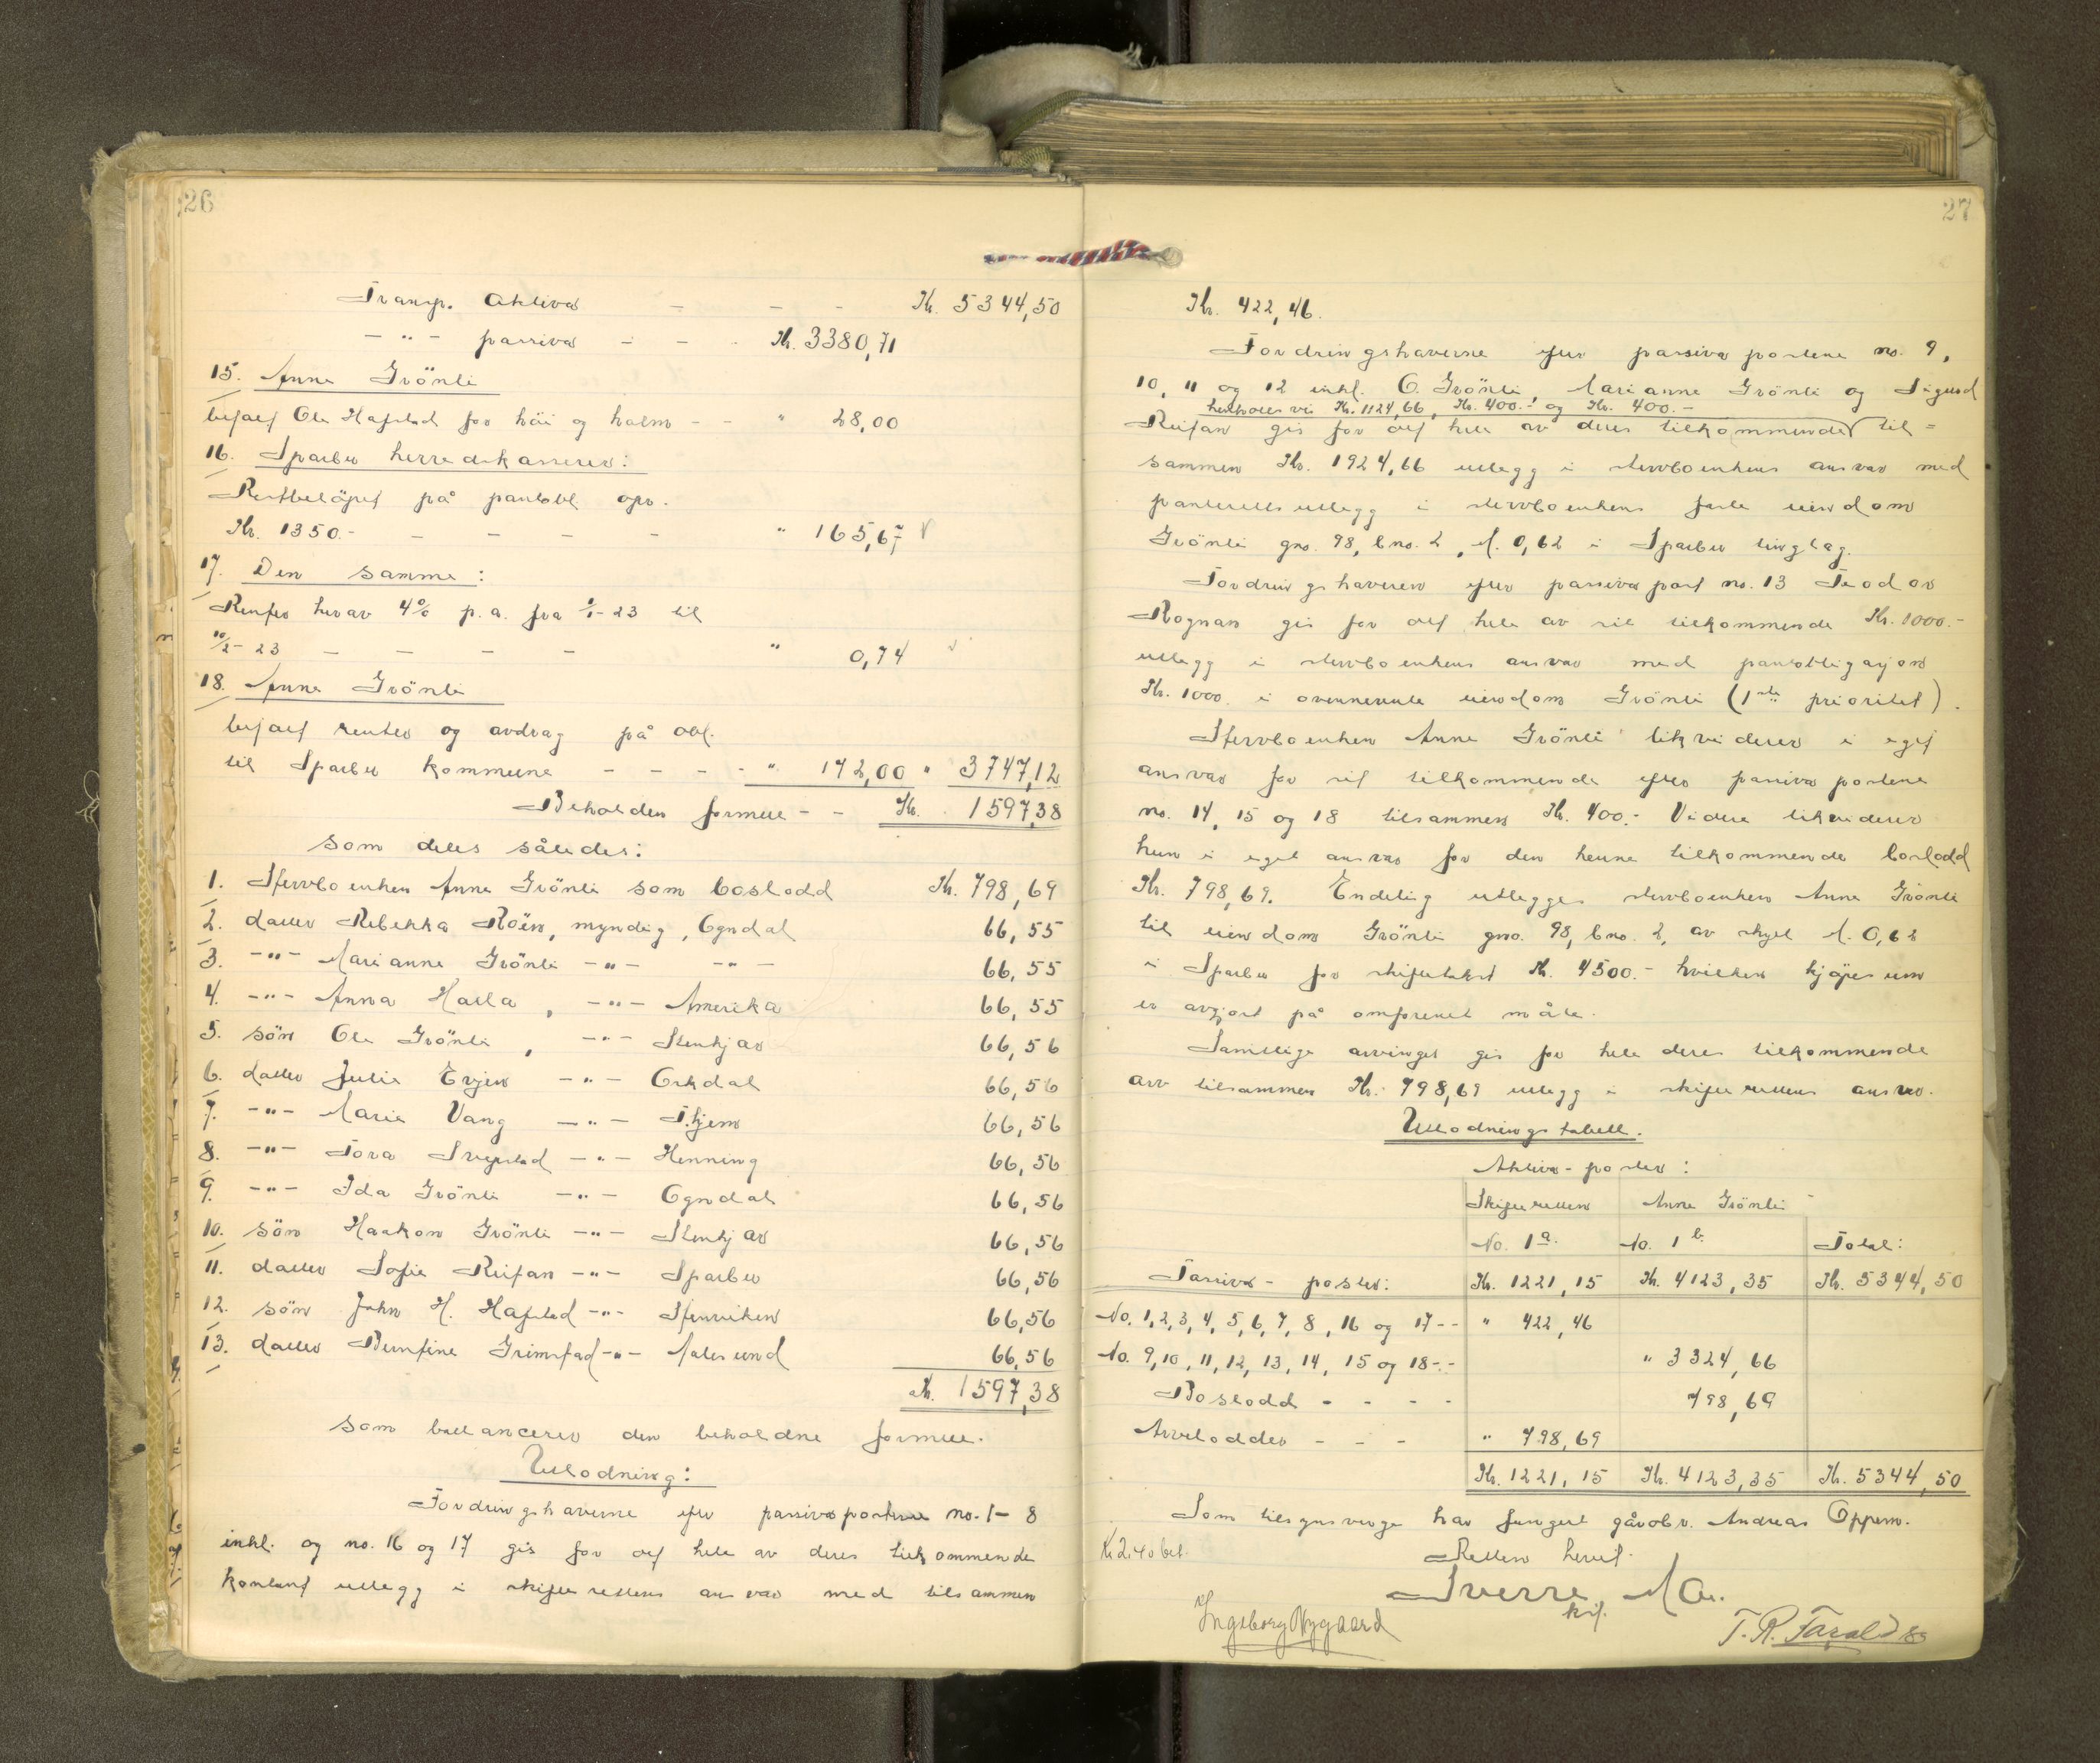 26
Transp. Aktiva - - - Kr. 5344,50
- " - passiva - - - Kr. 3380,71
15. Anna Grönli
betalt Ole Hafstad for höi og halm - - " 28,00
16. Sparbu herredskasserer:
Restbelöpet på pantobl. opr.
Kr. 1350.- - - - - " 165,67
17. Den samme:
Renter herav 4% p.a. fra 1/1-23 til
10/2-23 - - - - " 0,74
18. Anna Grönli
betalt renter og avdrag på obl.
til Sparbu kommune - - - - " 172,00 " 3747,12
Beholden formue - - Kr. 1597,38
som deles således:
1. Stervboenken Anne Grönli som boslodd Kr. 798,69
2. datter Rebekka Röin, myndig, Ogndal 66,55
3. -"- Marianne Grönli -"- -"- 66,55
4. -"- Anna Halla, -"- Amerika 66,55
5. sön Ole Grönli, -"- Stenkjær 66,56
6. datter Julie Evjen -"- Orkdal 66,56
7. -"- Marie Vang -"- T.hjem 66,56
8. -"- Tora Svepstad -"- Henning 66,56
9. -"- Ida Grönli -"- Ogndal 66,56
10. sön Haakon Grönli -"- Stenkjær 66,56
11. datter Sofie Reitan -"- Sparbu 66,56
12. sön John H. Hafstad -"- Stenviken 66,56
13. datter Berntine Grimstad -"- Aalesund 66,56
Kr. 1597,38
som ballancerer den beholdne formue.
Utlodning:
Fordringshaverne efter passivapostene no. 1- 8
inkl. og no. 16 og 17 gis for det hele av deres tilkommende
kontant utlegg i skifterettens ansvar med tilsammen
27
Kr. 422,46.
Fordringshaverne efter passiva postene no. 9,
10, 11 og 12 inkl. O. Grönli, Marianne Grönli og Sigurd
henholdsvis Kr. 1124,66, Kr. 400.- og Kr. 400.-
Reitan gis for det hele av deres tilkommende til=
sammen Kr. 1924,66 utlegg i stervboenkens ansvar med
panterettsutlegg i stervboenkens faste eiendom
Grönli gno. 98, bno. 2, M. 0,62 i Sparbu tinglag.
Fordringshaveren efter passiva post no. 13 Teodor
Rognan gis for det hele av sit tilkommende Kr. 1000.-
utlegg i stervboenkens ansvar med pantobligasjon
Kr. 1000. i ovennevnte eiendom Grönli (1ste prioritet).
Stervboenken Anne Grönli likviderer i eget
ansvar for sit tilkommende efter passiva postene
no. 14, 15 og 18 tilsammen Kr. 400.- Videre likviderer
hun i eget ansvar for den henne tilkommende boslodd
Kr. 798,69. Endelig utlegges stervboenken Anne Grönli
til eiendom Grönli gno. 98, bno. 2, av skyld M. 0,62
i Sparbu for skiftetakst Kr. 4500.- hvilken kjøpesum
er avgjort på omforenet måte.
Samtlige arvinger gis for hele deres tilkommende
arv tilsammen Kr. 798,69 utlegg i skifterettens ansvar.
Utlodningstabell.
Aktiva-poster:
Skifteretten Anne Grönli
No. 1a. No. 1b. Total:
Passiva-poster: Kr. 1221,15 Kr. 4123,35 Kr. 5344,50
No. 1,2,3,4,5,6,7,8,16 og 17 - - " 422,46
No. 9,10,11,12,13,14,15 og 18 - - " 3324,66
Boslodd - - - - 798,69
Arvelodder - - - " 798,69
Kr. 1221,15 Kr. 4123,35 Kr. 5344,50
Som tilsynsverge har fungert gårdbr. Andreas Oppem.
Retten hevet.
Sverre
Ingeborg Nygaard
T. R.